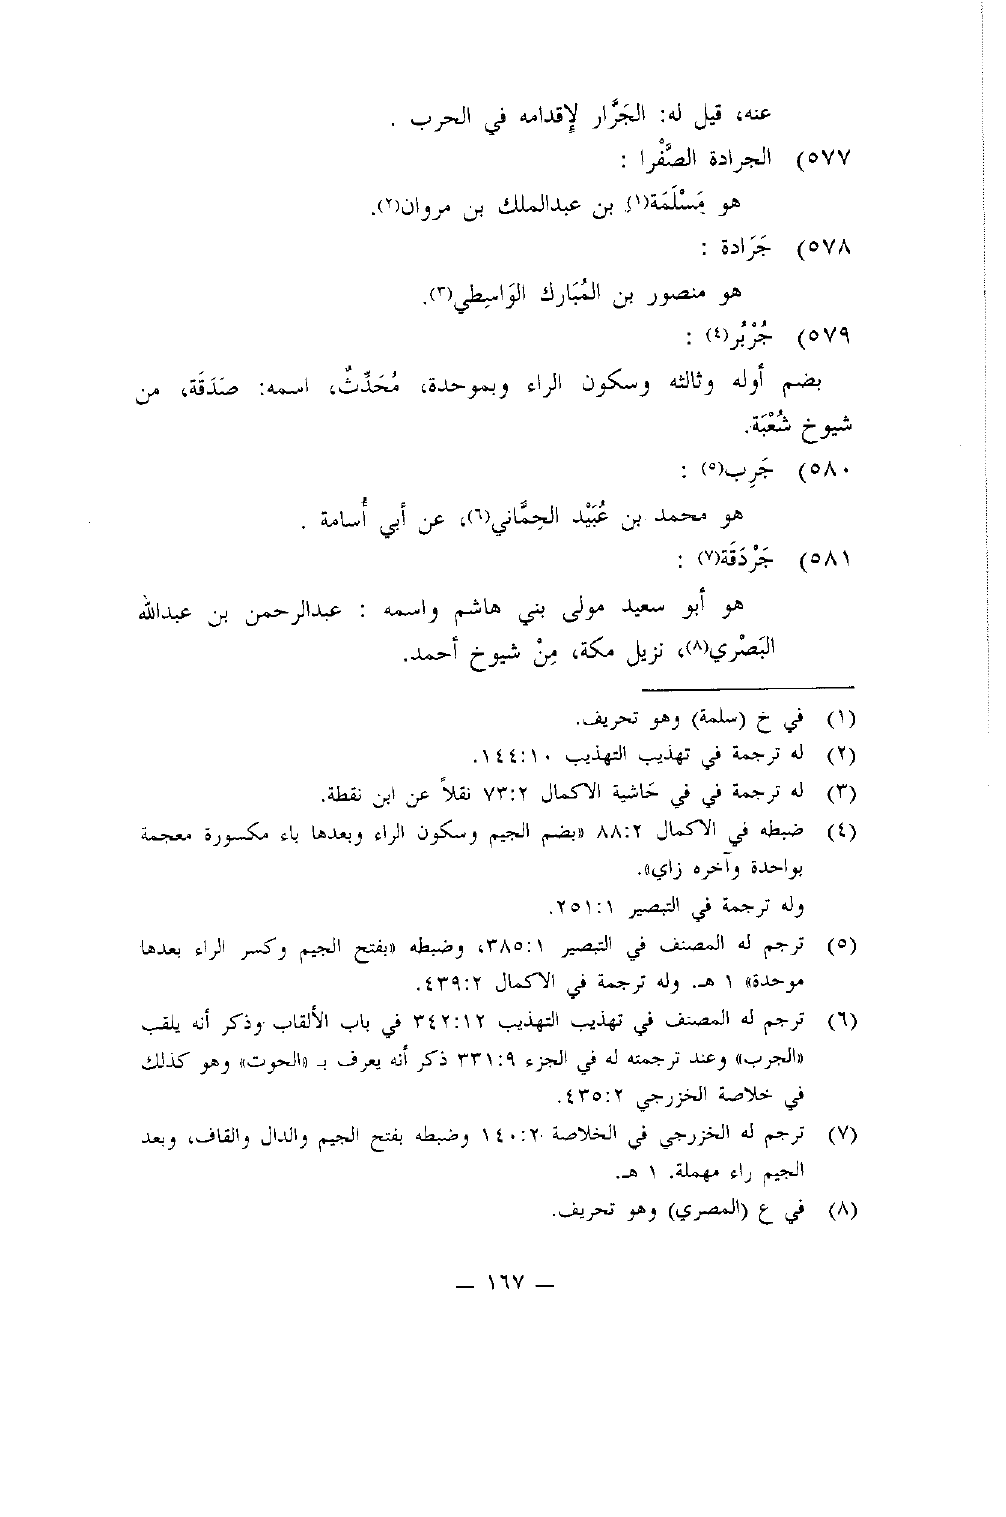 عنه، قيل له: الجَرَّار لإِقدامه في الحرب .
٥٧٧) الجرادة الصَّفْرا :
هو مَسْلَمَة(١) بن عبدالملك بن مروان(٢).
٥٧٨) جَرَادة :
هو منصور بن المُبَارك الوَاسِطي(٣).
٥٧٩) جُرْبُر(٤) :
بضم أوله وثالثه وسكون الراء وبموحدة، مُحَدِّثٌ، اسمه: صَدَقَة، من
شيوخ شُعْبَة.
٥٨٠) جَرِب(٥) :
هو محمد بن عُبَيْد الحِمَّاني(٦)، عن أبي أُسامة .
٥٨١) جَرْدَقَة(٧) :
هو أبو سعيد مولى بني هاشم واسمه : عبدالرحمن بن عبدالله
البَصْري(٨)، نزيل مكة، مِنْ شيوخ أحمد.
(١) في خ (سلمة) وهو تحريف.
(٢) له ترجمة في تهذيب التهذيب ١٤٤:١٠.
(٣) له ترجمة في في حَاشية الاكمال ٧٣:٢ نقلاً عن ابن نقطة.
(٤) ضبطه في الاكمال ٨٨:٢ «بضم الجيم وسكون الراء وبعدها باء مكسورة معجمة
بواحدة وآخره زاي».
وله ترجمة في التبصير ٢٥١:١.
(٥) ترجم له المصنف في التبصير ٣٨٥:١، وضبطه «بفتح الجيم وكسر الراء بعدها
موحدة» ١ هـ. وله ترجمة في الاكمال ٤٣٩:٢.
(٦) ترجم له المصنف في تهذيب التهذيب ٣٤٢:١٢ في باب الألقاب وذكر أنه يلقب
«الجرب» وعند ترجمته له في الجزء ٣٣١:٩ ذكر أنه يعرف بـ «الحوت» وهو كذلك
في خلاصة الخزرجي ٤٣٥:٢.
(٧) ترجم له الخزرجي في الخلاصة ١٤٠:٢ وضبطه بفتح الجيم والدال والقاف، وبعد
الجيم راء مهملة. ١ هـ.
(٨) في ع (المصري) وهو تحريف.
— ١٦٧ —